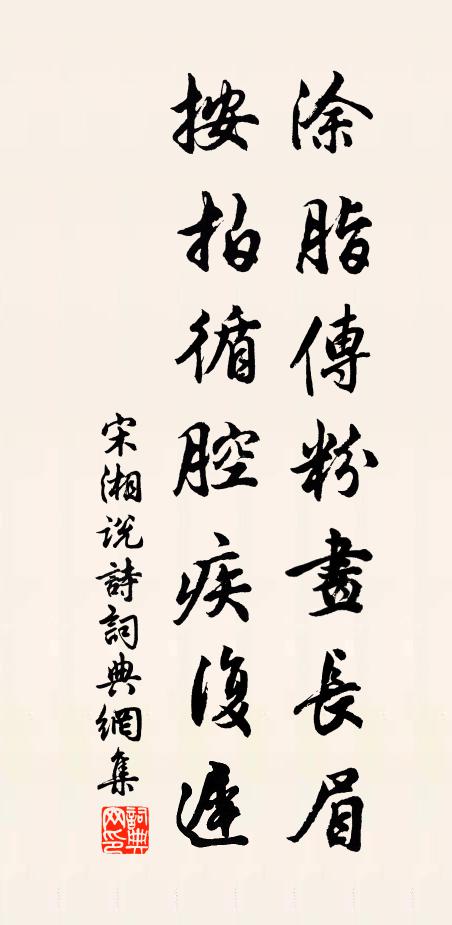 涂脂傅粉畫長眉
按拍循腔疾復遲
宋湘说詩詞典網集
詞典網印